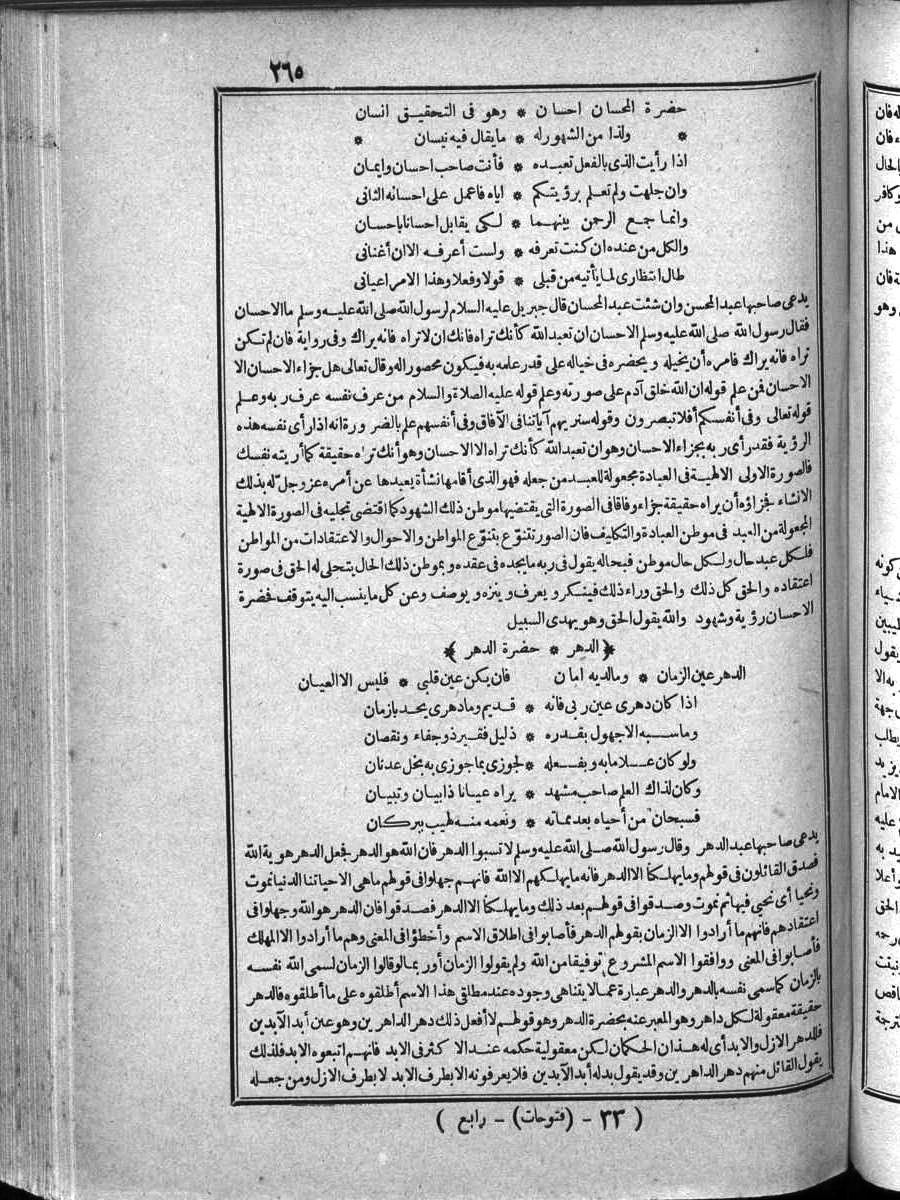 ٢٦٥
حضرة المحسان احسان * وهو فى التحقيق انسان
* ولذا من الشهور له * ما يقال فيه نيسان *
اذا رأيت الذى بالفعل تعبده * فأنت صاحب احسان وايمان
وان جهلت ولم تعلم برؤيتكم * اياه فاعمل على احسانه الثانى
وانما جمع الرحمن بينهما * لكى يقابل احسانا باحسان
والكل من عنده ان كنت تعرفه * ولست أعرفه الا ان أغنانى
طال انتظارى لما يأتيه من قبلى * قولا وفعلا وهذا الامر اعيانى
يدعى صاحبها عبد المحسن وان شئت عبد المحسان قال جبريل عليه السلام لرسول الله صلى الله عليه وسلم ما الاحسان
فقال رسول الله صلى الله عليه وسلم الاحسان ان تعبد الله كأنك تراه فانك ان لا تراه فانه يراك وفى رواية فان لم تكن
تراه فانه يراك فامره أن يتخيله ويحضره فى خياله على قدر علمه به فيكون محصورا له وقال تعالى هل جزاء الاحسان الا
الاحسان فمن علم قوله ان الله خلق آدم على صورته وعلم قوله عليه الصلاة والسلام من عرف نفسه عرف ربه وعلم
قوله تعالى وفى أنفسكم أفلا تبصرون وقوله سنريهم آياتنا فى الآفاق وفى أنفسهم علم بالضرورة انه اذا رأى نفسه هذه
الرؤية فقد رأى ربه بجزاء الاحسان وهو ان تعبد الله كأنك تراه الا الاحسان وهو أنك تراه حقيقة كما أريته نفسك
فالصورة الاولى الالهية فى العبادة مجعولة للعبد من جعله فهو الذى أقامها نشأة يعبدها عن أمره عز وجل له بذلك
الانشاء فجزاؤه أن يراه حقيقة جزاء وفاقا فى الصورة التى يقتضيها موطن ذلك الشهود كما اقتضى تجليه فى الصورة الالهية
المجعولة من العبد فى موطن العبادة والتكليف فان الصور تتنوّع بتنوّع المواطن والاحوال والاعتقادات من المواطن
فلكل عبد حال ولكل حال موطن فبحاله يقول فى ربه ما يجده فى عقده وبموطن ذلك الحال يتجلى له الحق فى صورة
اعتقاده والحق كل ذلك والحق وراء ذلك فينكر ويعرف وينزه ويوصف وعن كل ما ينسب اليه يتوقف فحضرة
الاحسان رؤية وشهود والله يقول الحق وهو يهدى السبيل
﴿الدهر * حضرة الدهر﴾
الدهر عين الزمان * وما لديه امان فان يكن عين قلبى * فليس الا العيان
اذا كان دهرى عين ربى فانه * قديم وما دهرى يحد بازمان
وما سبه الا جهول بقدره * ذليل فقير ذو جفاء ونقصان
ولو كان علاما به وبفعله * لجوزى بما جوزى به نجل عدنان
وكان لذاك العلم صاحب مشهد * يراه عيانا ذا بيان وتبيان
فسبحان من أحياه بعد مماته * ونعمه منه بطيب بركان
يدعى صاحبها عبد الدهر وقال رسول الله صلى الله عليه وسلم لا تسبوا الدهر فان الله هو الدهر فجعل الدهر هوية الله
فصدق القائلون فى قولهم وما يهلكنا الا الدهر فانه ما يهلكهم الا الله فانهم جهلوا فى قولهم ما هى الا حياتنا الدنيا نموت
ونحيا أى نحيى فيها ثم نموت وصدقوا فى قولهم بعد ذلك وما يهلكنا الا الدهر فصدقوا فان الدهر هو الله وجهلوا فى
اعتقادهم فانهم ما أرادوا الا الزمان بقولهم الدهر فأصابوا فى اطلاق الاسم وأخطؤا فى المعنى وهم ما أرادوا الا المهلك
فأصابوا فى المعنى ووافقوا الاسم المشروع توفيقا من الله ولم يقولوا الزمان أو ربما لو قالوا الزمان لسمى الله نفسه
بالزمان كما سمى نفسه بالدهر والدهر عبارة عما لا يتناهى وجوده عند مطلقى هذا الاسم أطلقوه على ما أطلقوه فالدهر
حقيقة معقولة لكل داهر وهو المعبر عنه بحضرة الدهر وهو قولهم لا أفعل ذلك دهر الداهرين وهو عين أبد الآبدين
فللدهر الازل والابد أى له هذان الحكمان لكن معقولية حكمه عند الاكثر فى الابد فانهم اتبعوه الابد فلذلك
يقول القائل منهم دهر الداهرين وقد يقول بدله أبد الآبدين فلا يعرفونه الا بطرف الابد لا بطرف الازل ومن جعله
( ٣٣ - (فتوحات) - رابع )